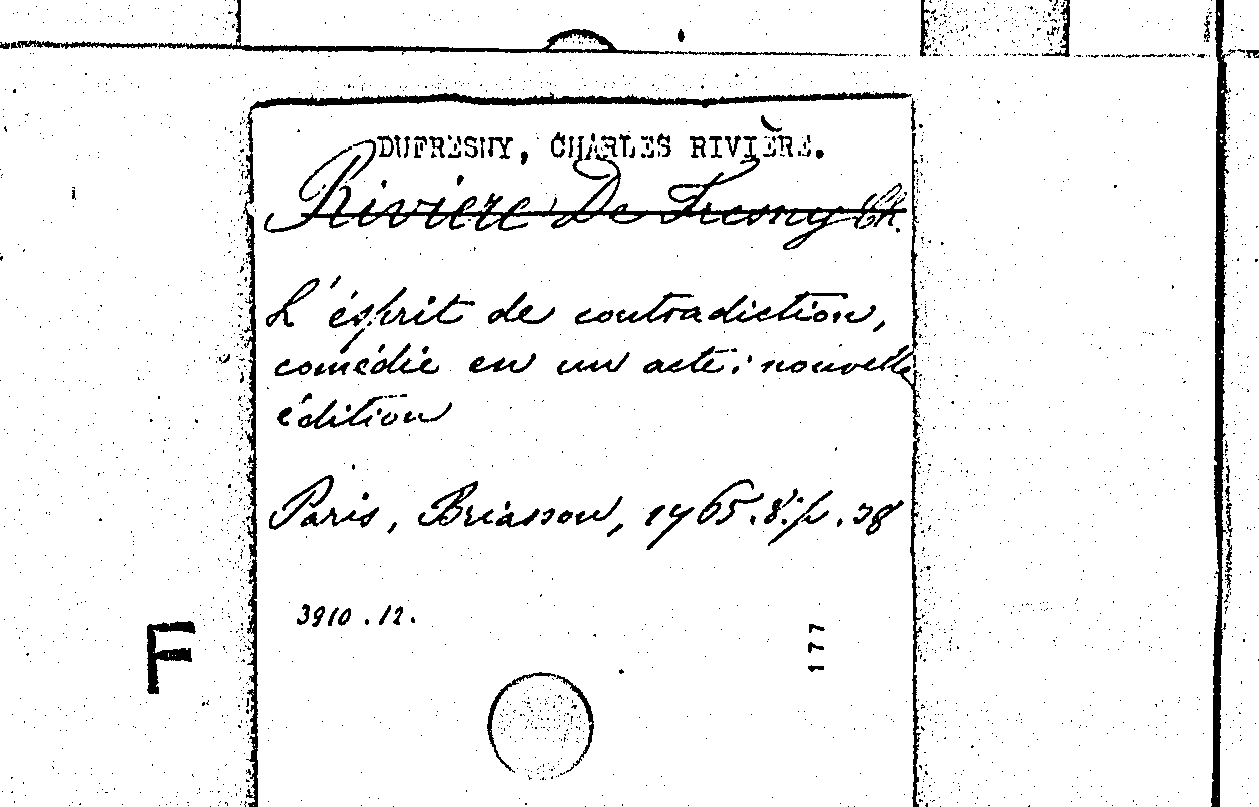 DUFRESNY, CHARLES RIVIÈRE.
Rivière De Fresny Ch.
L'ésprit de contradiction,
comédie en un acte; nouvelle
édition
Paris, Briasson, 1765. 8. p. 38
3910.12.
177
F